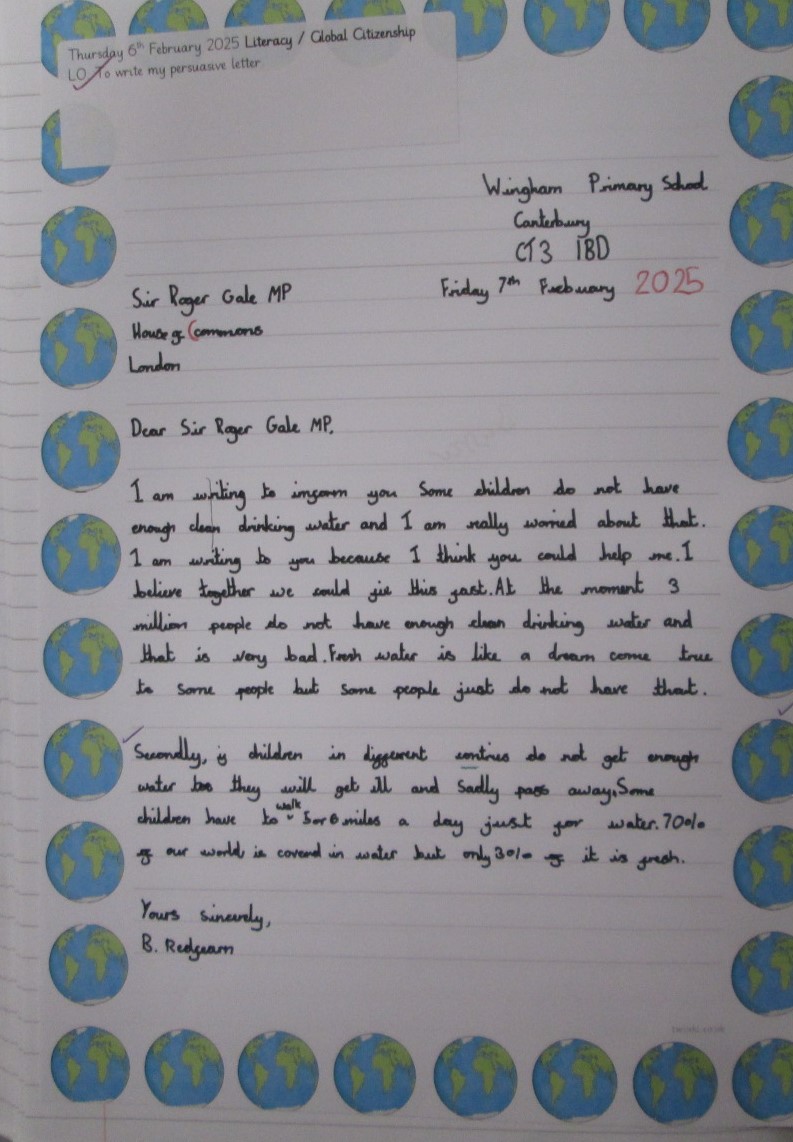 Thursday 6th February 2025 Literacy / Global Citizenship
LO To write my persuasive letter
Wingham Primary School
Canterbury
CT3 1BD
Friday 7th Feebuary 2025
Sir Roger Gale MP
House of Commons
London
Dear Sir Roger Gale MP.
I am writing to inform you Some children do not have
enough clean drinking water and I am really worried about that.
I am writing to you because I think you could help me. I
believe together we could fix this fast. At the moment 3
million people do not have enough clean drinking water and
that is very bad. Fresh water is like a dream come true
to some people but some people just do not have that.
Secondly, if children in different contries do not get enough
water they will get ill and sadly pass away. Some
children have to walk 5 or 6 miles a day just for water. 70%
of our world is coverd in water but only 30% of it is fresh.
Yours sincerely,
B. Redfearn